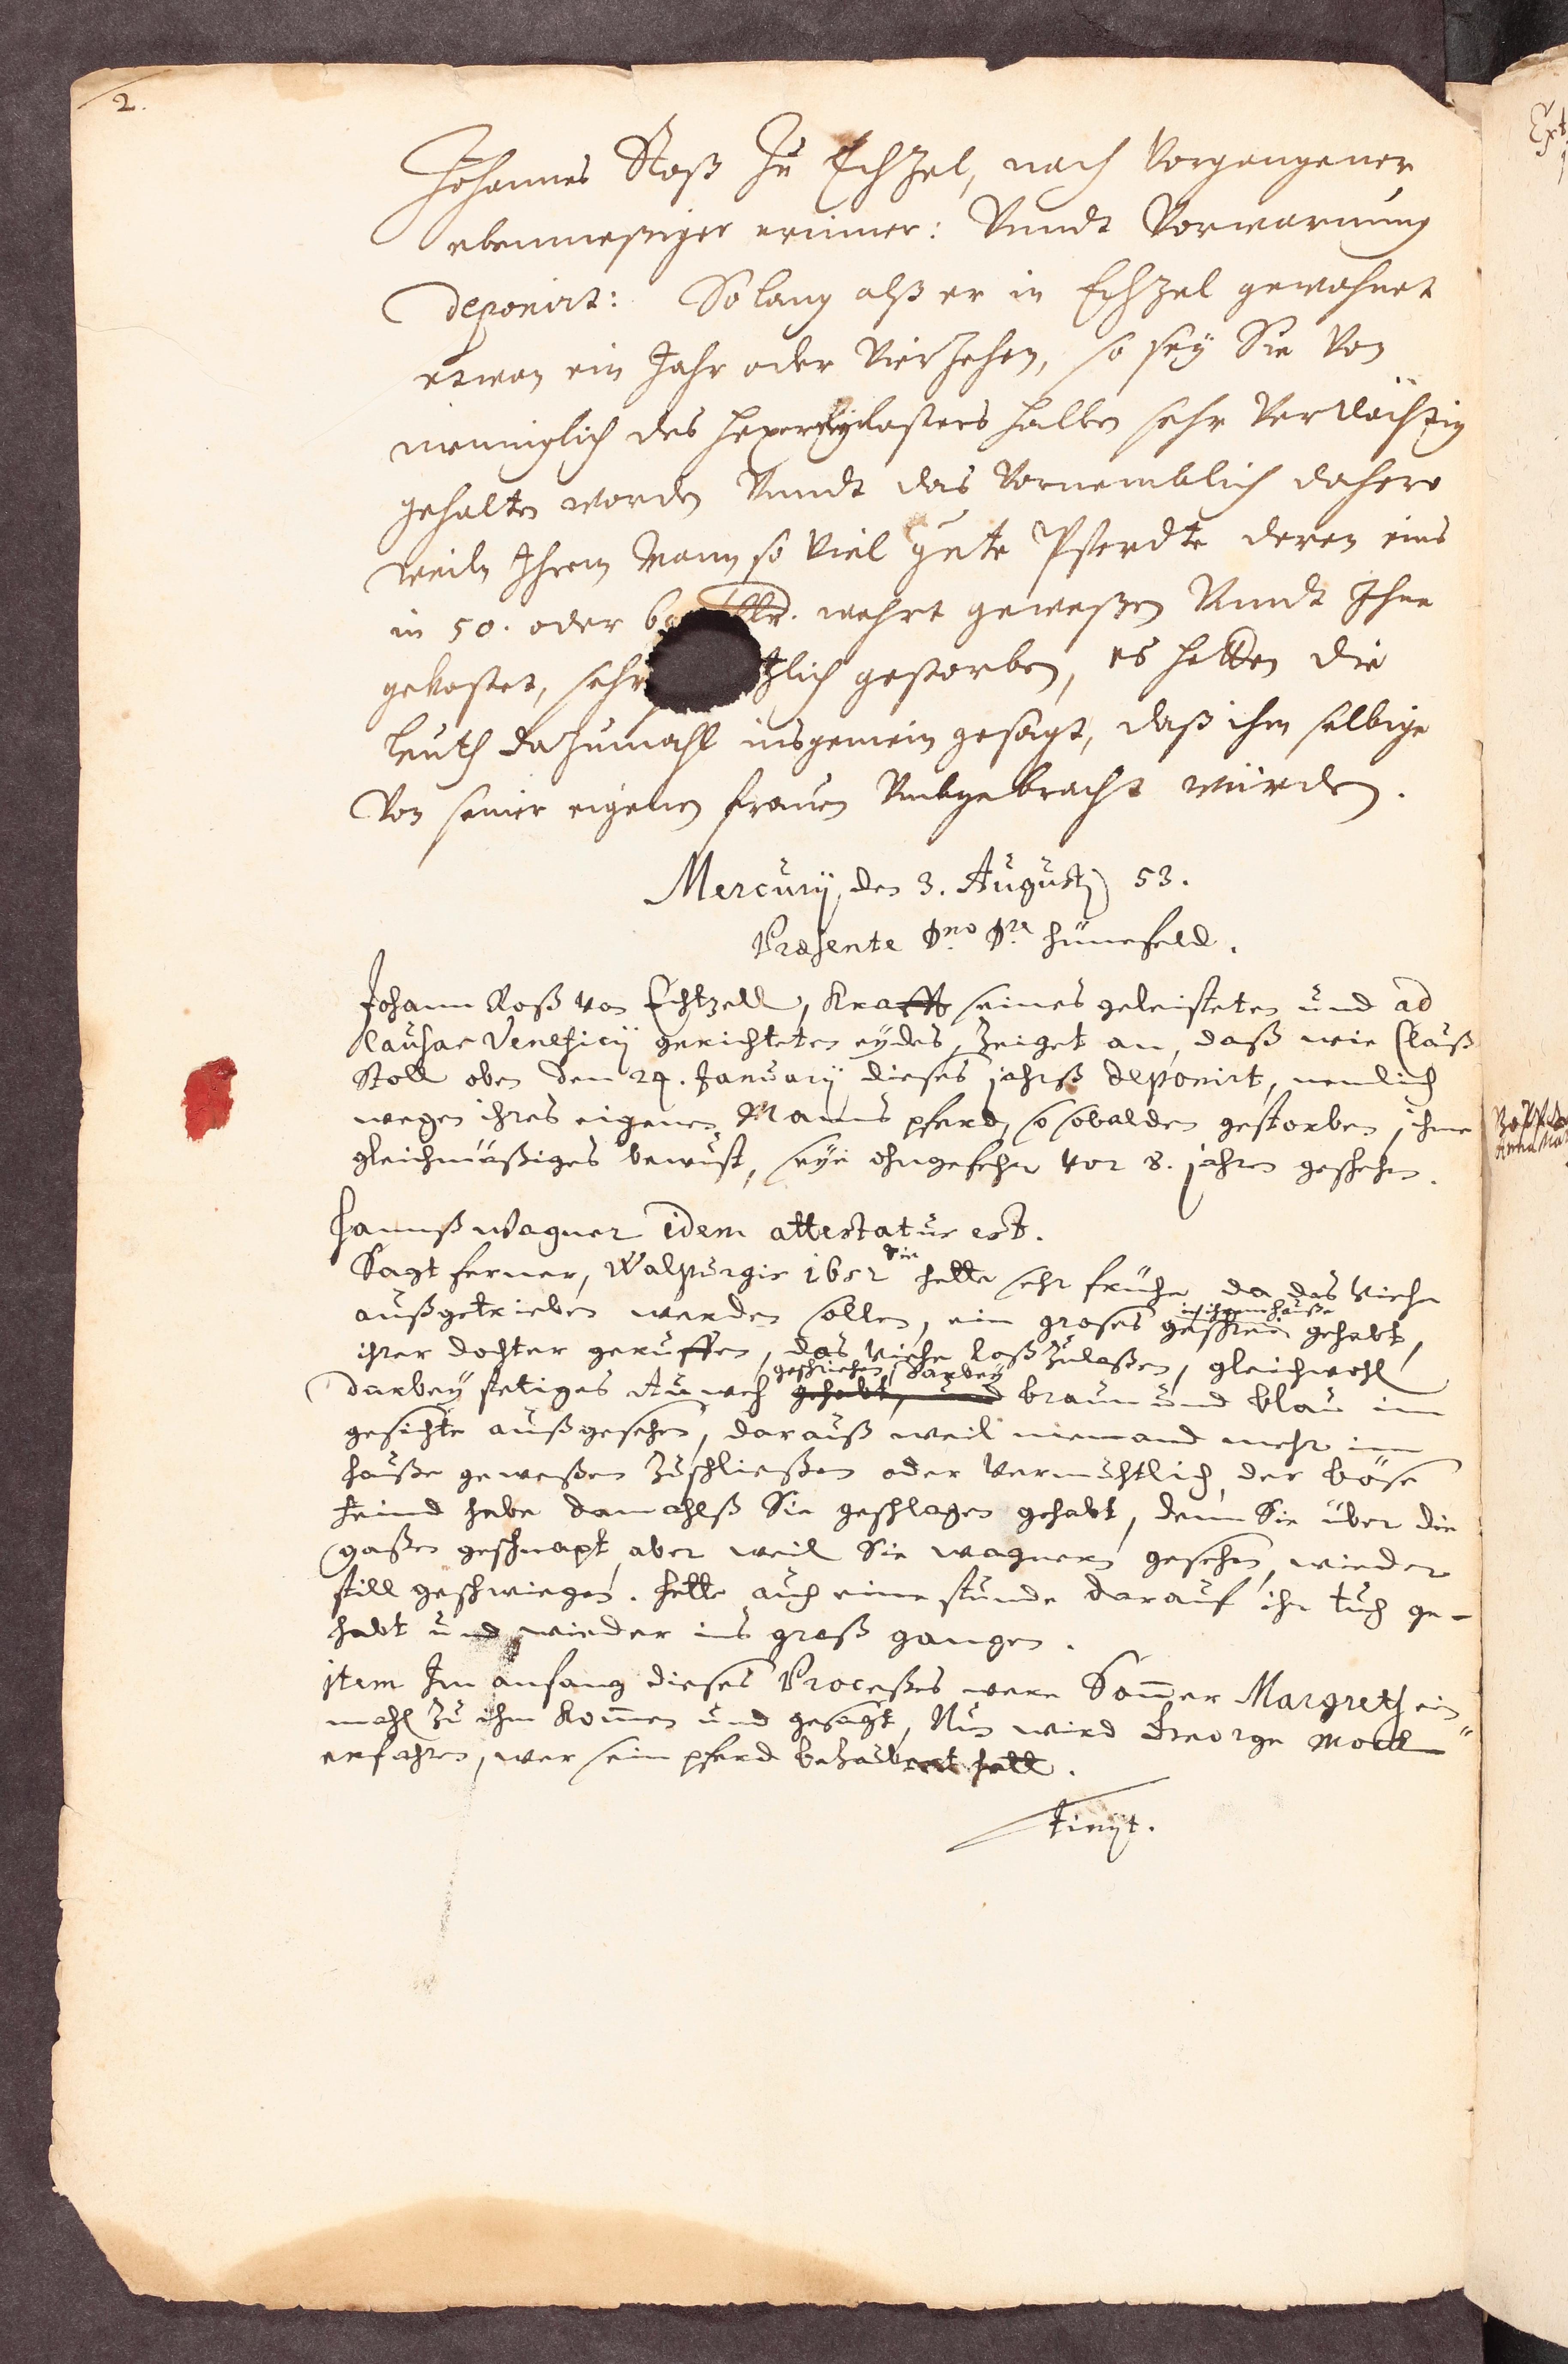 2.
Johannes Roß Zu Echzel, nach Vorgangener
ebenmeßiger erinner: Vnndt Vorwarnung
deponirt: So lang alß er in Echzel gewohnet
etwan ein Jahr oder Vierzehen, so sey Sie Von
menniglich des Hexereylasters halben sehr Verdächtig
gehalten worden Vnndt das Vornemblich dahero
weiln Ihrem Mann so viel gute Pferdte deren eins
in 50. oder 60 wehrt geweßen Vnndt Ihne
gekostet, sehr zlich gestorben, es hetten die
leuth dazumahl insgemein gesagt, daß ihm selbige
Von seiner eigenen frauen Vmbgebracht würden.
Mercurij, den 3. Augustj 53.
Præsente Dno Dre Hünefeld.
Johann Roß von Echtzell, krafft seines geleisteten und ad
causae Veneficij gerichteten eydes, zeiget an, daß wie Clauß
Stoll oben den 24. January dieses jahrß deponirt, nemlich
wegen ihres eigenen Manns pferd, so sobalden gestorben, ihme
gleichmäßiges bewust, seye ohngefehr vor 8. jahren geschehen.
Hannß Wagner idem attestatus est.
Sagt ferner, Walpurgis 1652 hette sehr frühe da das Viehe
außgetrieben werden sollen, ein groses geschrei in ihrem hauße gehabt,
ihrer dochter geruffen, das Viehe loß zulaßen, gleichwohl
darbey stetiges Au weh gehabt, und geschriehen, darbey braun und blau im
gesichte außgesehen, darauß weil niemand mehr im
hauße geweßen zuschließen oder Vermuhtlich der böse
feind habe damahlß Sie geschlagen gehabt, denn Sie über die
gaßen geschnapt, aber weil Sie wagnern gesehen, wieder
still geschwiegen. hette auch eine stunde darauf ihr tuch ge-
habt und wieder ins graß gangen.
item Im anfang dieses Proceßes were Sommer Margreth ein
mahl zu ihm kommen und gesagt, Nun wird George
erfahren, wer sein pferd bezaubert hett.